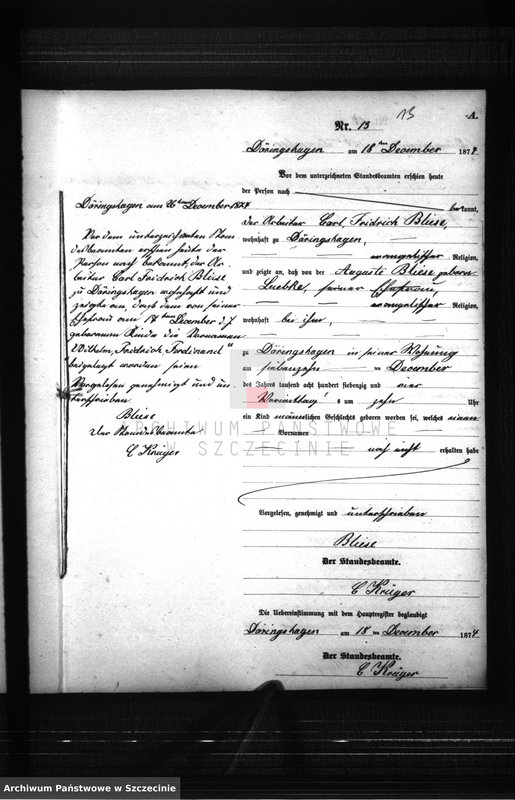 13
A.
Nr. 13
Döringshagen am 18ten December 1874
Vor dem unterzeichneten Standesbeamten erschien heute
der Person nach
bekannt,
der Arbeiter Carl Fridrich Bliese,
wohnhaft zu Döringshagen,
evangelischer Religion,
und zeigte an, daß von der Auguste Bliese geborn
Luebtke, seiner Ehefrau,
evangelischer Religion,
wohnhaft bei ihm,
zu Döringshagen in seiner Wohnung
am siebenzehn ten December
des Jahres tausend acht hundert siebenzig und vier
Vormittags um zehn Uhr
ein Kind männlichen Geschlechts geboren worden sei, welches einen
Vornamen
noch nicht erhalten habe
Vorgelesen, genehmigt und unterschrieben
Bliese
Der Standesbeamte.
C Krüger
Die Uebereinstimmung mit dem Hauptregister beglaubigt
Döringshagen am 18 ten December 1874
Der Standesbeamte.
C Krüger
Döringshagen am 26ten December 1874
Vor dem unterzeichneten Stan
desbeamten erschien heute der
Person nach bekannt, der Ar
beiter Carl Fridrich Bliese,
zu Döringshagen wohnhaft und
zeigte an, daß dem von seiner
Ehefrau am 17ten December d. J.
geborenen Kinde die Vornamen
"Wilhelm, Friedrich, Ferdinand"
beigelegt worden seien
Vorgelesen genehmigt und un
terschrieben
Bliese
Der Standesbeamte
C Krüger
ARCHIWUM PAŃSTWOWE
W SZCZECINIE
Archiwum Państwowe w Szczecinie